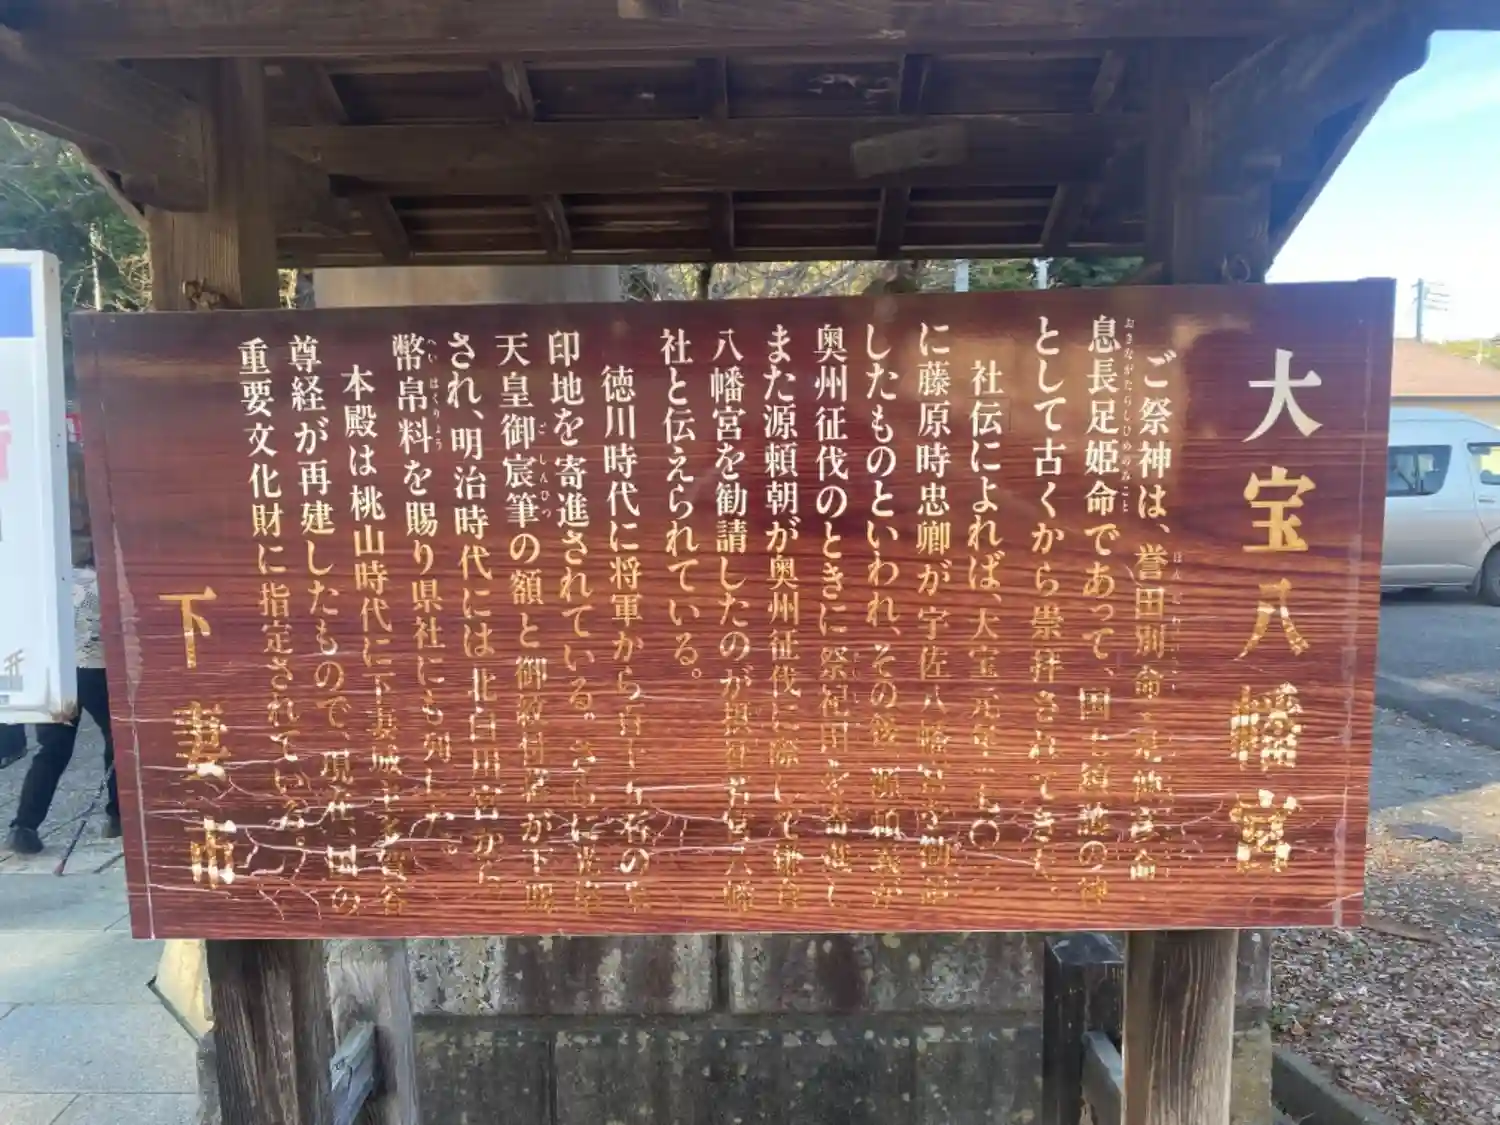 大宝八幡宮
ご祭神は、誉田別命
息長足姫命であって、国土鎮護の神
おきながたらしひめのみこと
として古くから崇拝されてきた。
社伝によれば、大宝元年
に藤原時忠卿が宇佐八幡
したものといわれ、その後 源頼義が
奥州征伐のときに祭祀田を寄進し
また源頼朝が奥州征伐に際して鎌倉
八幡宮を勧請したのが摂社若宮八幡
社と伝えられている。
徳川時代に将軍から
印地を寄進されている。さらに光格
天皇御宸筆の額と御教付書が下賜
ごしんひつ
され、明治時代には北白川宮から
幣帛料を賜り県社にも列した。
へいはくりょう
本殿は桃山時代に下妻城主多賀谷
尊経が再建したもので、現在、国の
重要文化財に指定されている。
下妻市